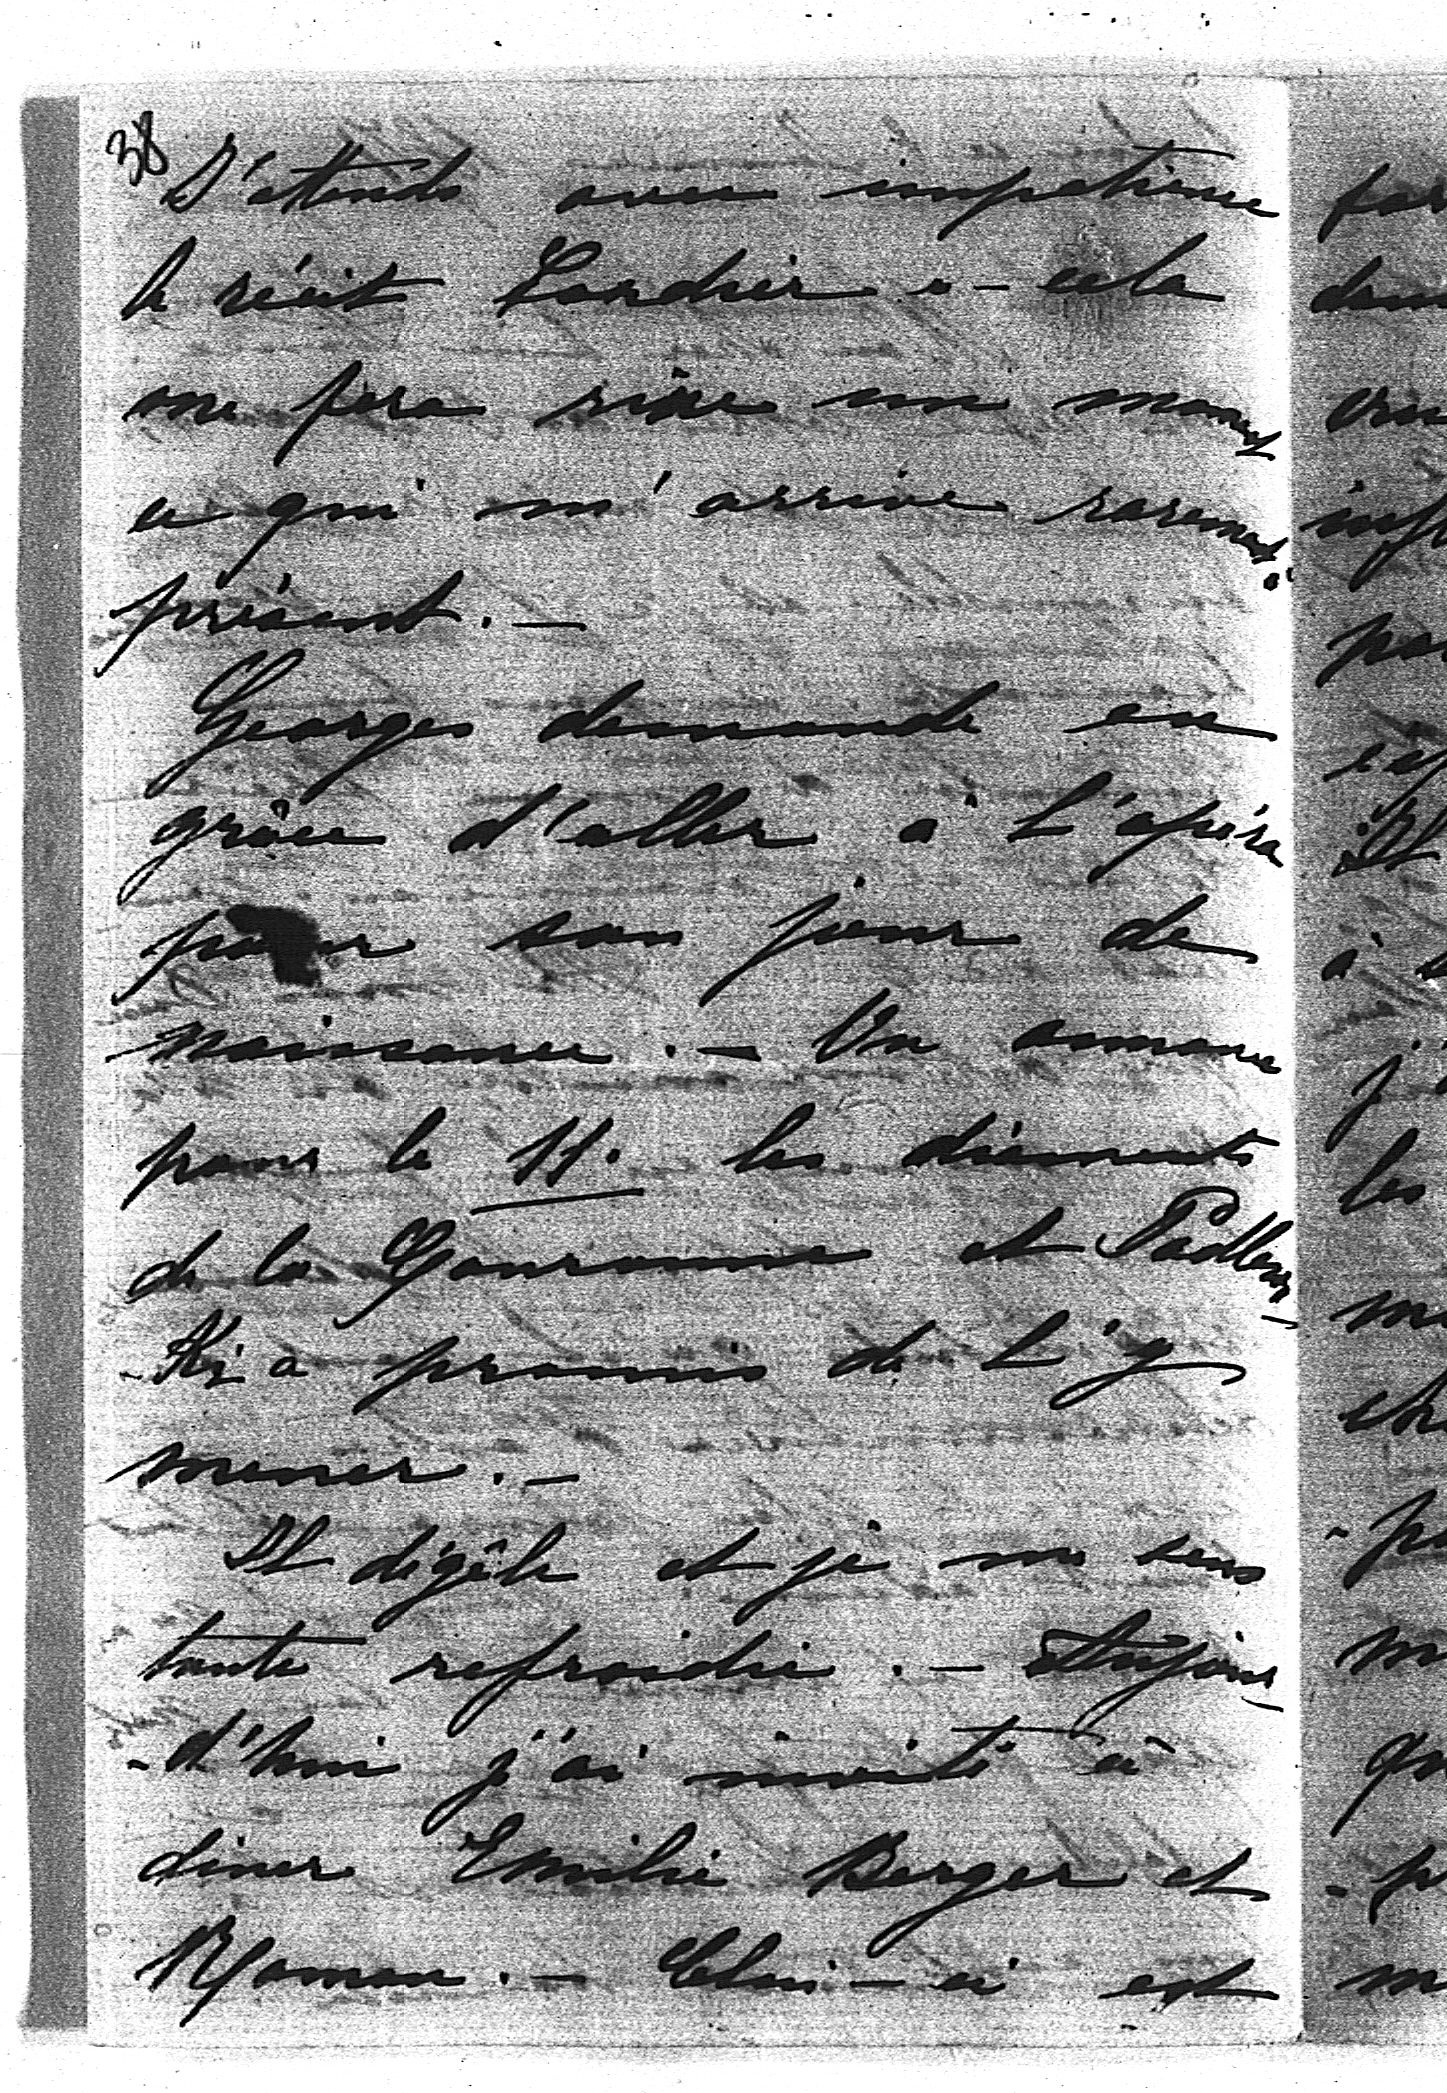 38
J'attends avec impatience
le récit Cordier – cela
me fera rire un moment
ce qui m'arrive rarement à
présent. –
Georges demande en
grâce d'aller à l'opéra
pour son jour de
naissance. – On annonce
pour le 11. les diamants
de la Couronne et
a promis de l'y
mener. –
Il dégèle et je me sens
toute refroidie. – Aujour-
-d'hui j'ai invité à
diner Emilie Berger et
Celui-ci est